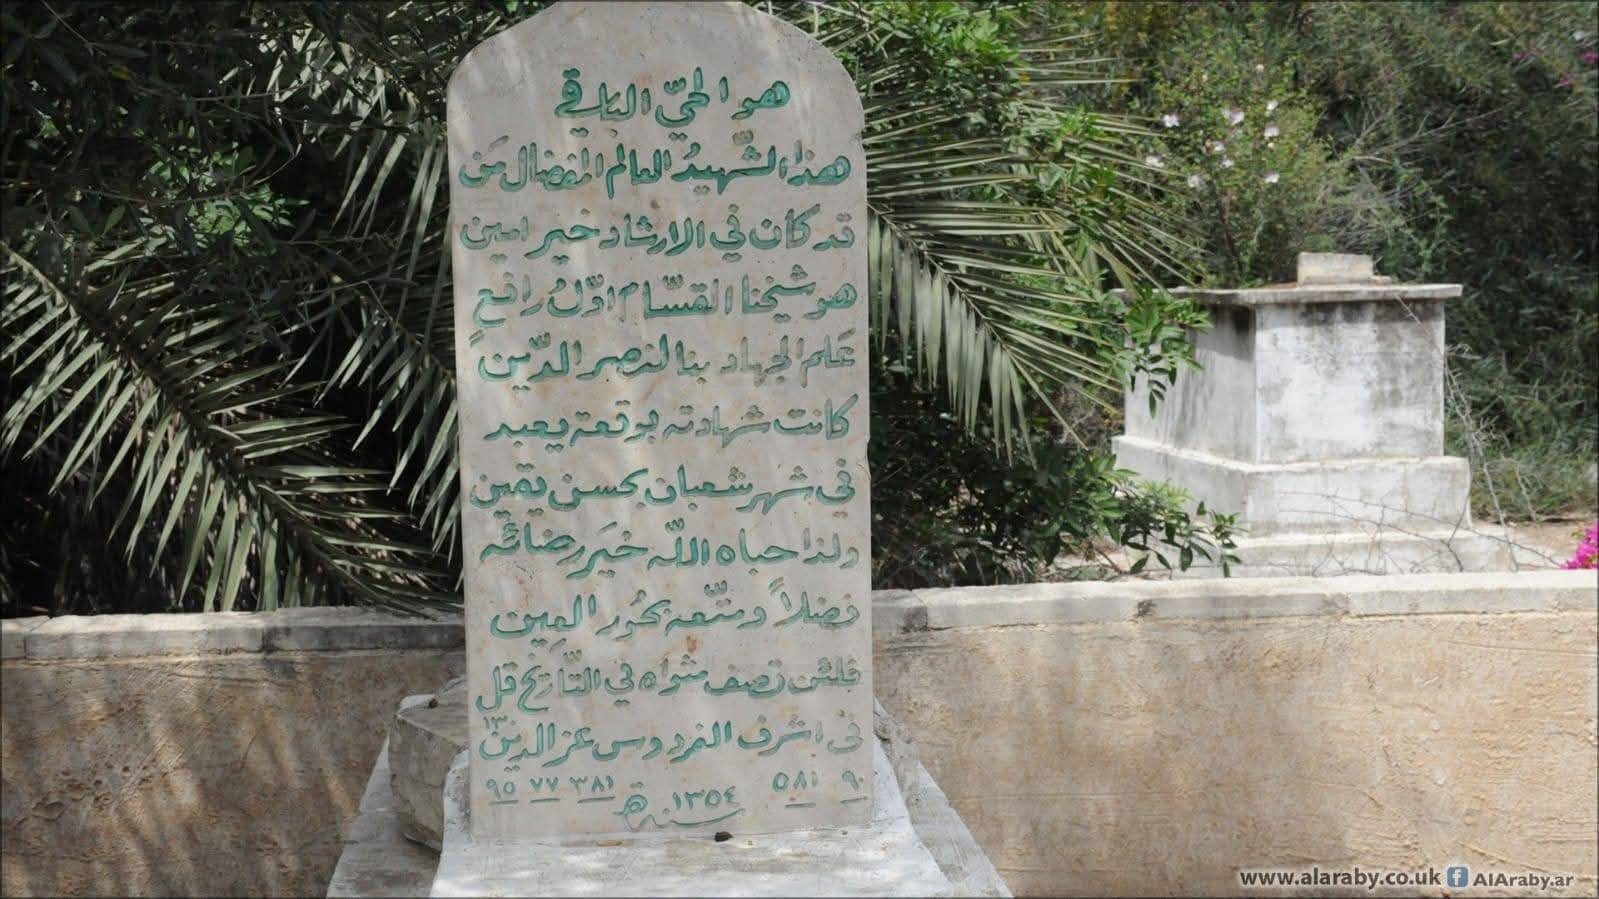 هو الحيّ الباقي
هذا الشّهيدُ العالم المفضال مَن
قد كان في الارشاد خير امين
هو شيخنا القسّام اوّلُ رافع
عَلم الجهاد بنا لنصر الدّينِ
كانت شهادته بوقعة يعبد
في شهر شعبان بحسن يقين
ولذا حباه اللّه خيَر رضائه
فضلاً ومتّعه بحُور العِين
فلئن تصف مثواه في التّاريخ قل
في اشرف الفردوس عز الدين
١٣
٩٠ ٥٨١ ٣٨١ ٧٧ ٩٥
سنة ١٣٥٤ هـ
www.alaraby.co.uk f AlAraby.ar